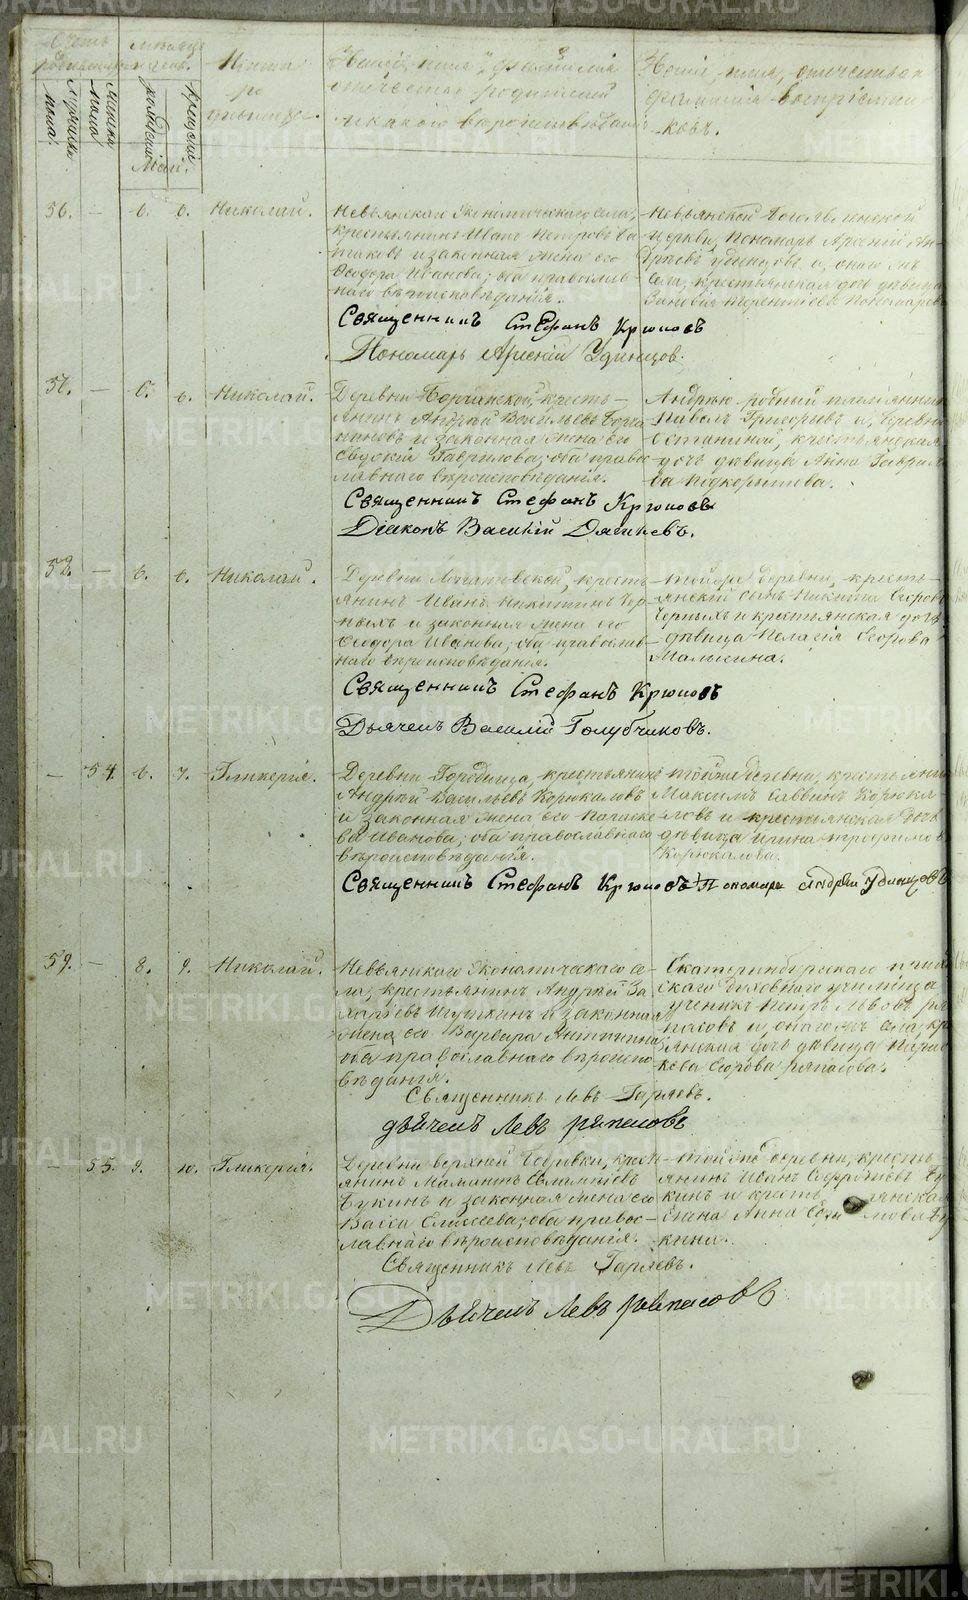 METRIKI.GASO-URAL.RU
Счетъ родившихся
Мѣсяцъ и день.
Имена родившихся.
Званіе, имя, отчество и фамилія родителей и какого вѣроисповѣданія
Званіе, имя, отчество и фамилія воспріемниковъ.
Мужеска пола.
Женска пола
рожденія
крещенія
Маій.
56. — 6. 6. Николай.
Невьянскаго Экономическаго села,
крестьянинъ Иванъ Петровъ
и законная жена его
Ѳеодора Иванова; оба православнаго вѣроисповѣданія.
Невьянской Богоявленской
церкви, Пономарь Арсеній
Удинцовъ и, онаго жъ
села, крестьянская дочь дѣвица
Зиновія Терентіева Пономарева
Священникъ Стефанъ Крюковъ
Пономарь Арсеній Удинцов.
57. — 6. 6. Николай.
Деревни крестьянинъ Андрей Васильевъ
и законная жена его
Евдокія Гаврилова; оба православнаго вѣроисповѣданія.
Андрею родный племянникъ
Павелъ Григорьевъ и, деревни
Останиной, крестьянская
дочь дѣвица Анна Гаврилова Подкорытова.
Священникъ Стефанъ Крюковъ
Діаконъ Василій Дягилевъ.
58. — 6. 6. Николай.
Деревни Липатовской, крестьянинъ Иванъ Никитинъ Черныхъ и законная жена его
Ѳеодора Иванова; оба православнаго вѣроисповѣданія.
Той же деревни, крестьянскій сынъ Никита Егоровъ
Черныхъ и крестьянская дочь
дѣвица Пелагія Егорова
Малыгина.
Священникъ Стефанъ Крюковъ
Дьячекъ Василій Голубчиковъ.
— 54. 6. 7. Гликерія.
Деревни Городища, крестьянинъ
Андрей Васильевъ Корюкаловъ
и законная жена его Параскева Иванова; оба православнаго
вѣроисповѣданія.
той же деревни, крестьянинъ
Максимъ Саввинъ Корюкаловъ и крестьянская дочь
дѣвица Ирина Трофимова
Корюкалова.
Священникъ Стефанъ Крюковъ Пономарь Андрей Удинцовъ
59. — 8. 9. Николай.
Невьянскаго Экономическаго села, крестьянинъ Андрей Захаріевъ Шушкинъ и законная
жена его Варвара Антипина,
оба православнаго вѣроисповѣданія.
Екатеринбургскаго
Духовнаго училища
ученикъ Петръ Львовъ Ряпасовъ и, онаго жъ села,
дочь дѣвица
Егорова Ряпасова.
Священникъ Левъ Гаряевъ.
Дьячекъ Левъ Ряпасовъ
— 55. 9. 10. Гликерія.
Деревни верхней Бобровки, крестьянинъ
Букинъ и законная жена его
Васса Елисеева; оба православнаго вѣроисповѣданія.
той же деревни, крестьянинъ Иванъ Софроніевъ Букинъ и
Анна
Букина.
Священникъ Левъ Гаряевъ.
Дьячекъ Левъ Ряпасовъ